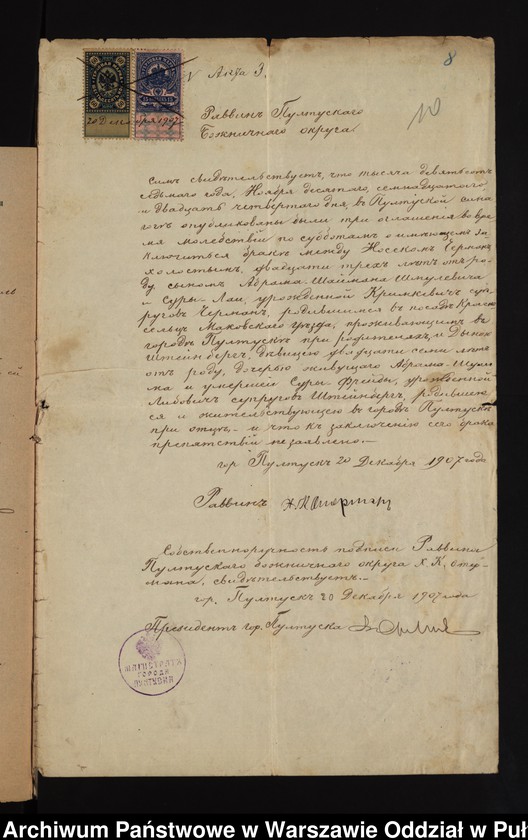 8
10
20 Декабря 1907
Акта 3.
Раввинъ Пултускаго
Божничнаго округа
Симъ свидѣтельствуетъ, что тысяча девятьсотъ
седьмого года, Ноября десятаго, семнадцатаго
и двадцать четвертаго дня, въ Пултуской сина
гогѣ опубликованы были три оглашенія во вре
мя молебствій по субботамъ о имѣющемъ за
ключиться бракѣ между Іоскомъ Германъ
холостымъ, двадцати трехъ лѣтъ отъ ро
ду, сыномъ Абрама Шаймана Шмулевича
и Суры Лаи, урожденной Кримкевичъ суп
руговъ Германъ, родившимся въ посадѣ Красно
сельцъ Маковскаго уѣзда, проживающимъ въ
городѣ Пултускѣ при родителяхъ, и
Штейнбергъ, дѣвицею двадцати семи лѣтъ
отъ роду, дочерью живущаго Абрама Шул
има и умершей Суры Фрейды, урожденной
Либовичъ супруговъ Штейнбергъ, родившею
ся и жительствующею въ городѣ Пултускѣ
при отцѣ, и что къ заключенію сего брака
препятствій незаявлено.—
гор. Пултускъ 20 Декабря 1907 года
Раввинъ
Собственноручность подписи Раввина
Пултускаго божничнаго округа Х. К.
свидѣтельствуетъ.—
гр. Пултускъ 20 Декабря 1907 года
Президентъ гор. Пултуска
МАГИСТРАТЪ
ГОРОДА
ПУЛТУСКА
Archiwum Państwowe w Warszawie Oddział w Puł